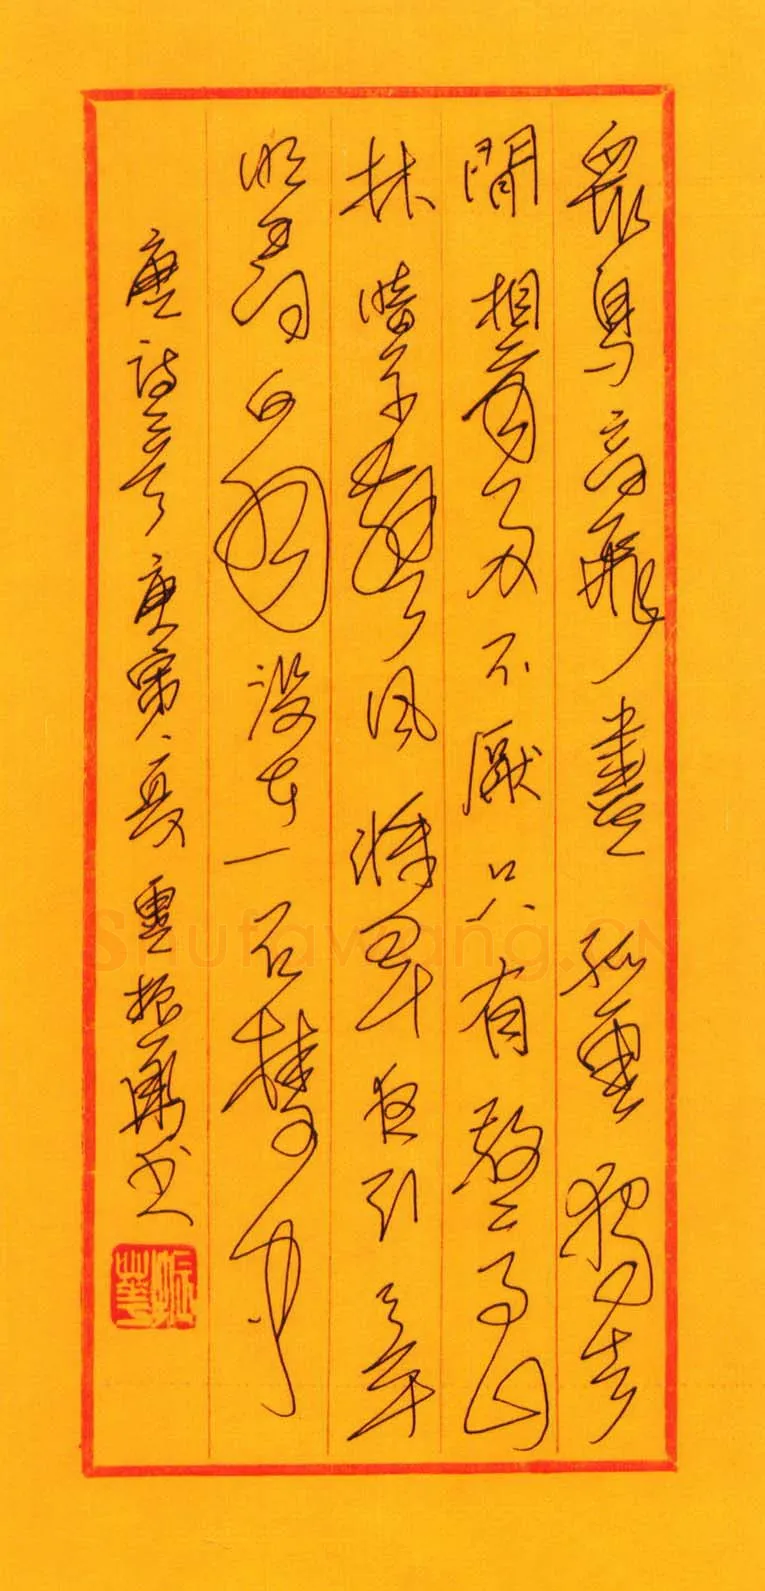 眾鳥高飛盡孤雲獨去
閒相看兩不厭只有敬亭山
林暗草驚風將軍夜引弓平
明尋白羽没在石稜中
唐詩二首庚寅夏振書
Shufawang.CN